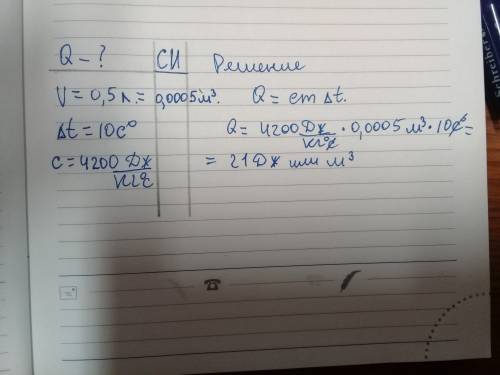 Q - ? СИ Решение
V = 0,5 л. = 0,0005 м³. Q = cm Δt.
Δt = 10 c° Q = 4200 Дж/кг°c · 0,0005 м³ · 10 c° =
c = 4200 Дж/кг°c = 21 Дж или м³